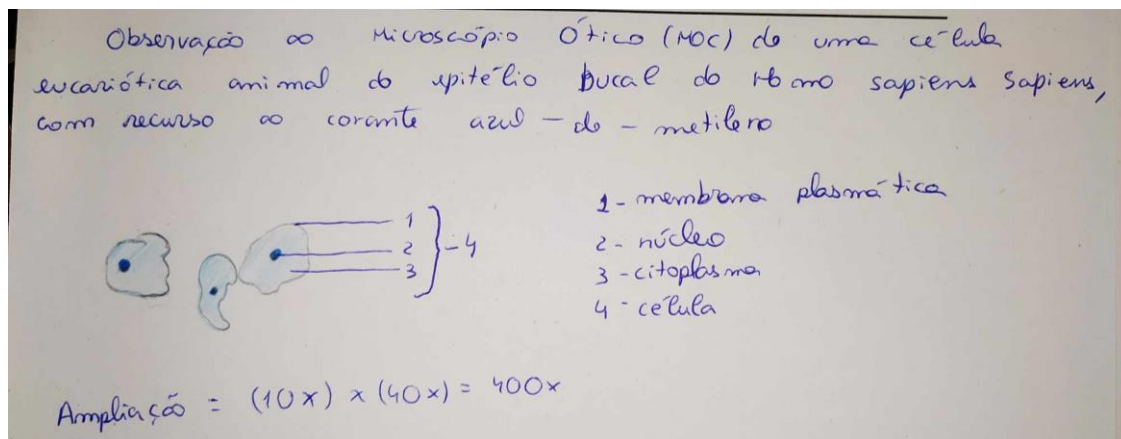 Observação ao Microscópio Ótico (MOC) de uma célula
eucariótica animal do epitélio bucal do Homo sapiens sapiens,
com recurso ao corante azul-de-metileno
1
2
3
4
1 - membrana plasmática
2 - núcleo
3 - citoplasma
4 - célula
Ampliação = (10x) x (40x) = 400x